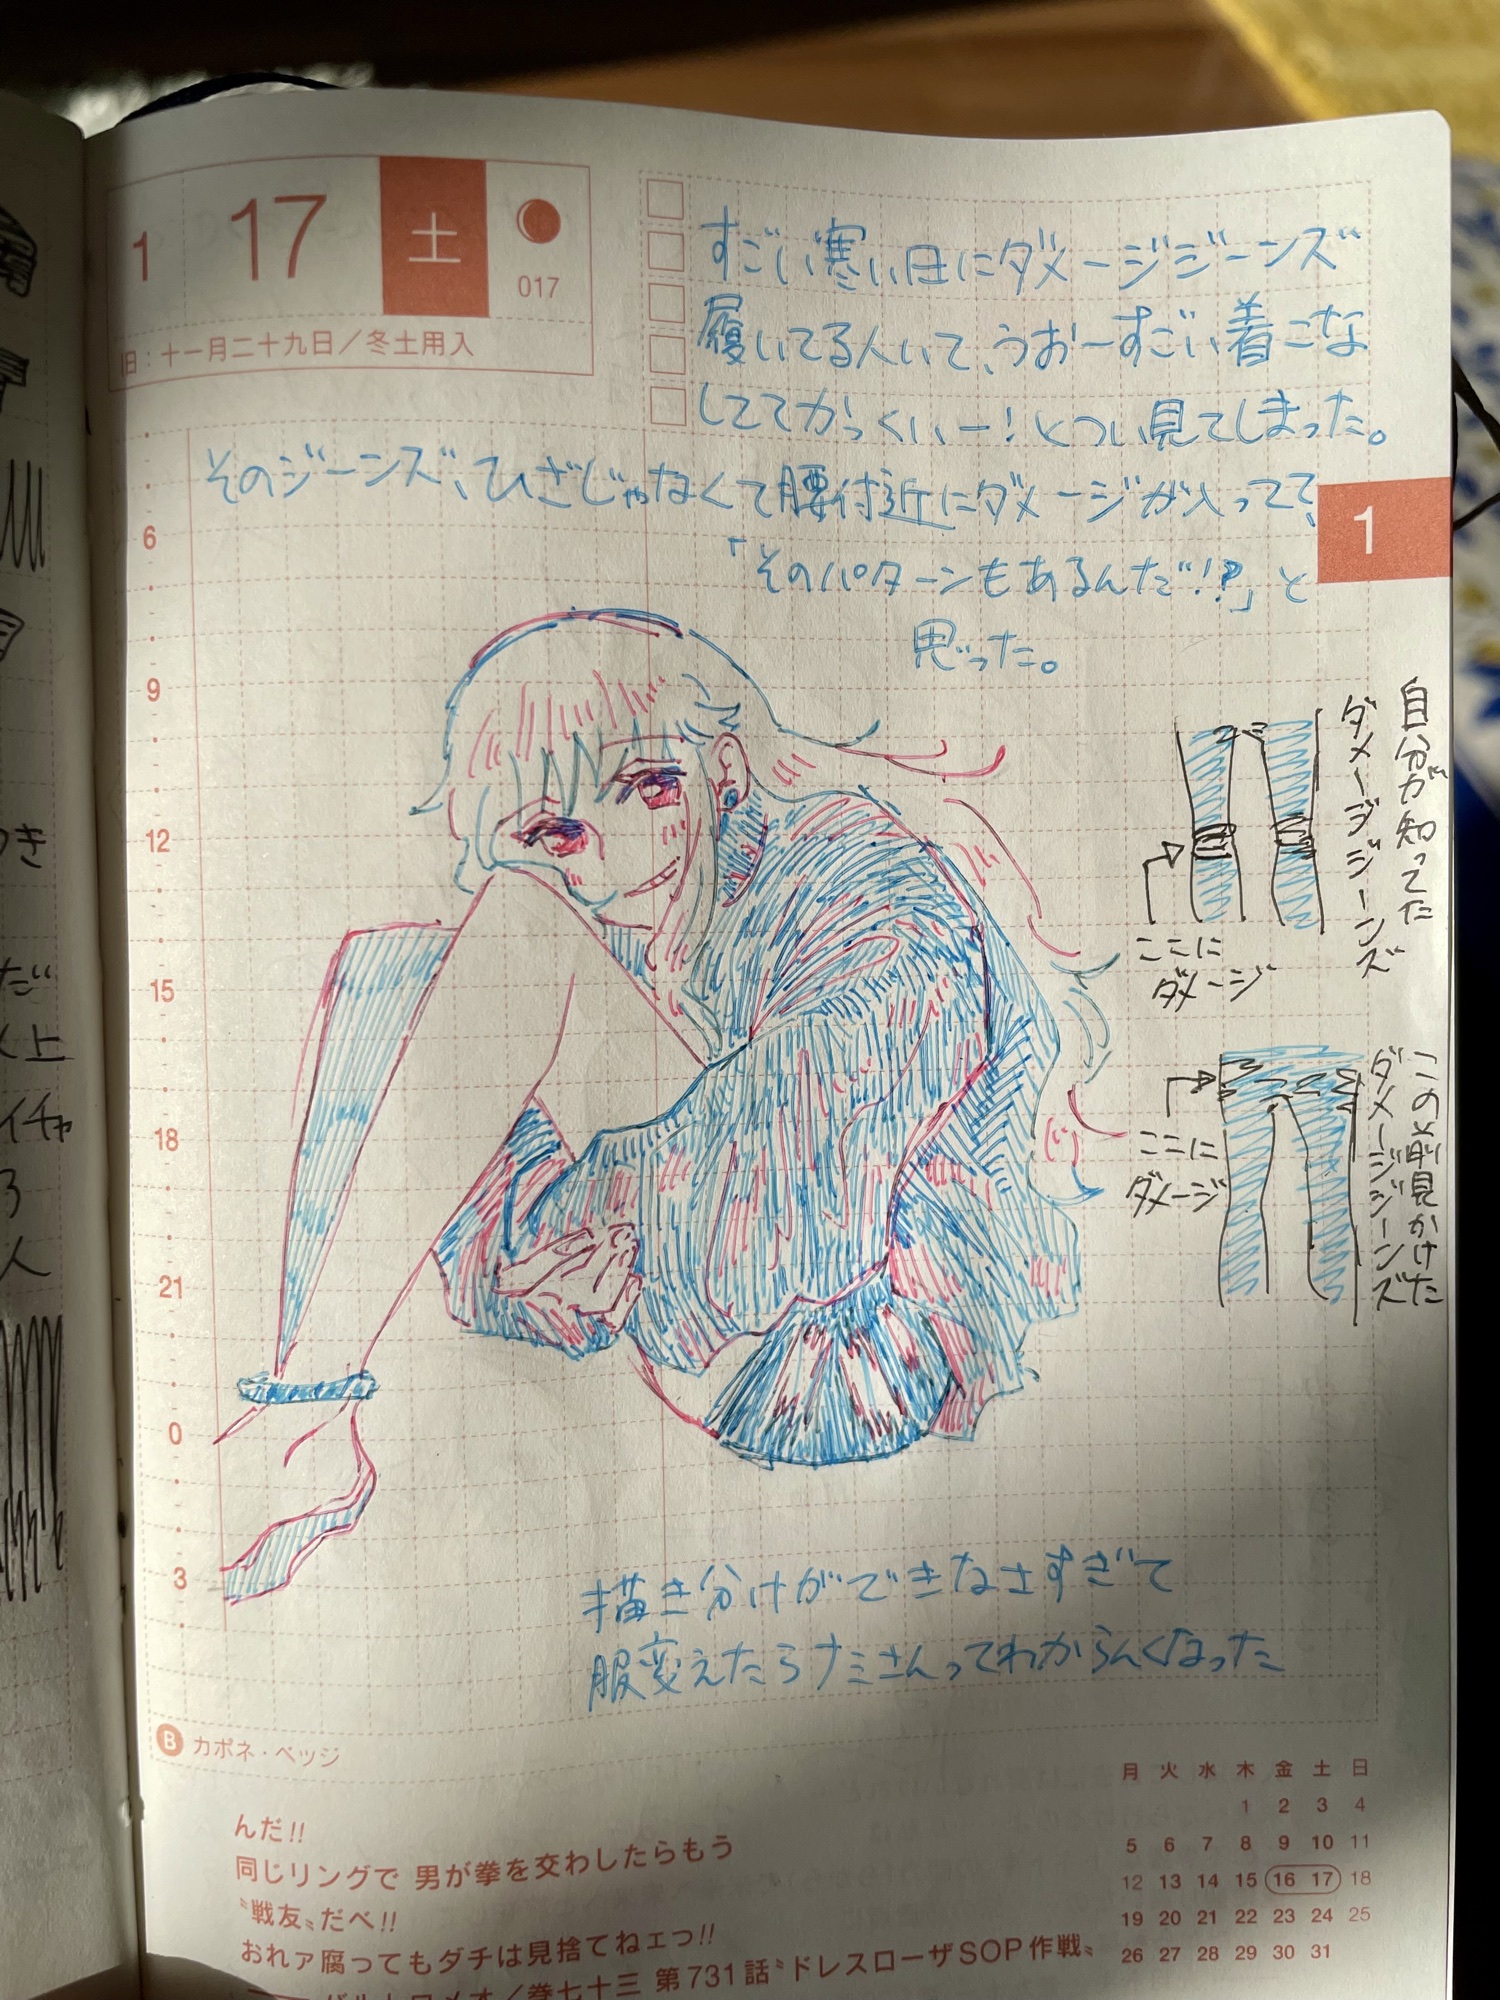 1 17 土
017
旧：十一月二十九日／冬土用入
すごい寒い日にダメージジーンズ
履いてる人いて、うおーすごい着こな
しててかっくいー！とつい見てしまった。
そのジーンズ、ひざじゃなくて腰付近にダメージが入ってて、
「そのパターンもあるんだ!?」と
思った。
1
6
9
12
15
18
21
0
3
自分が知ってた
ダメージジーンズ
ここに
ダメージ
この前見かけた
ダメージジーンズ
ここに
ダメージ
描き分けができなさすぎて
服変えたらナミさんってわからんくなった
B カポネ・ベッジ
んだ!!
同じリングで 男が拳を交わしたらもう
〝戦友〟だべ!!
おれァ腐ってもダチは見捨てねェっ!!
バルトロメオ／巻七十三 第731話〝ドレスローザSOP作戦〟
月 火 水 木 金 土 日
1 2 3 4
5 6 7 8 9 10 11
12 13 14 15 16 17 18
19 20 21 22 23 24 25
26 27 28 29 30 31
き
だ
く上
イチャ
ろ
人